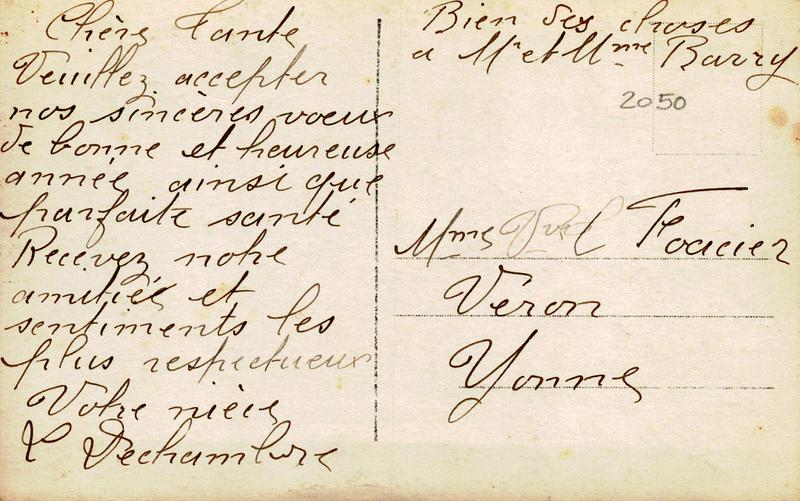 Chère Tante
Veuillez accepter
nos sincères voeux
de bonne et heureuse
année ainsi que
parfaite santé
Recevez notre
amitiée et
sentiments les
plus respectueux
Votre nièce
L Dechambre
Bien des choses
a Mr et Mme Barry
2050
Mme
Véron
Yonne